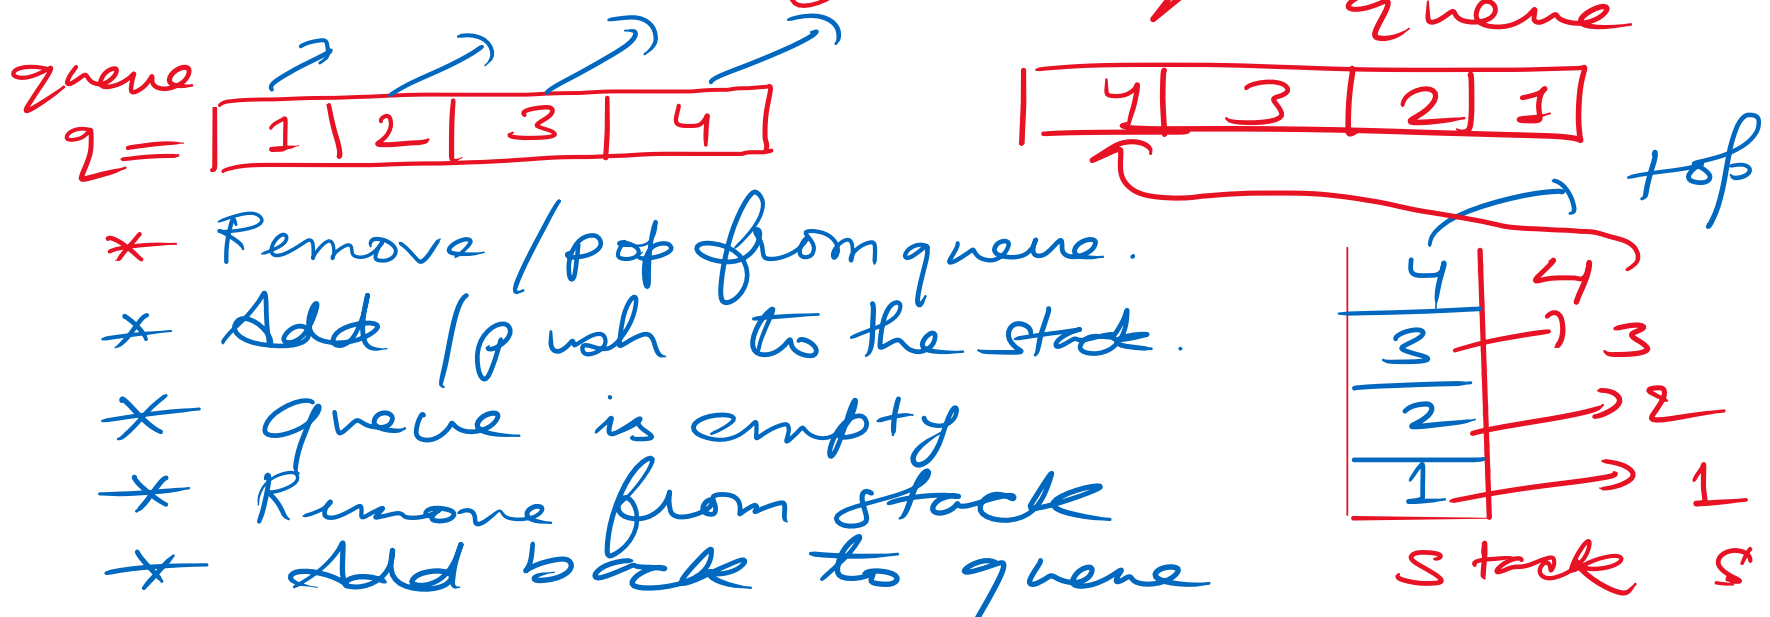 queue
queue
q = 1 2 3 4
4 3 2 1
top
* Remove / pop from queue.
* Add / push to the stack.
* queue is empty
* Remove from stack
* Add back to queue
4 4
3 3
2 2
1 1
stack s